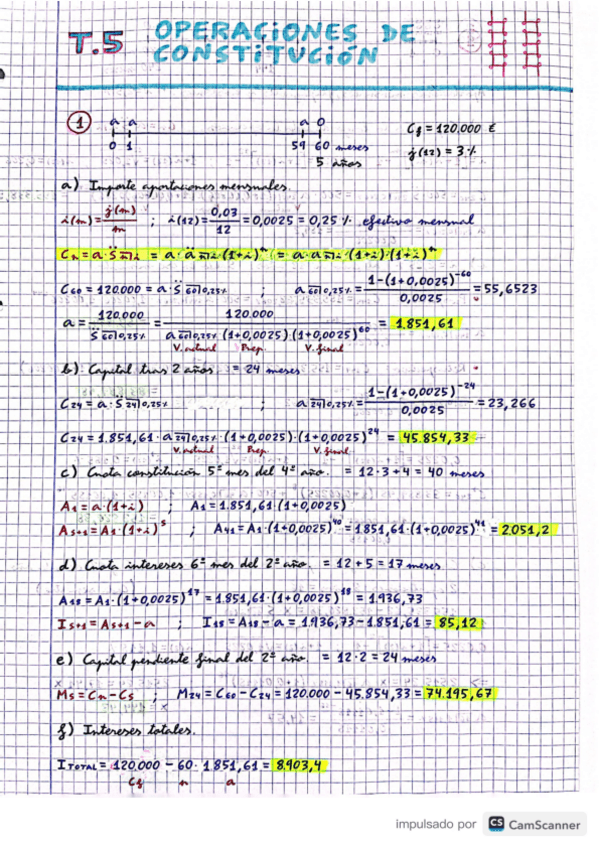 T.5 OPERACIONES DE
CONSTITUCIÓN
1
a a a 0
0 1 59 60 meses
5 años
Cf = 120.000 €
j(12) = 3%
a) Importe aportaciones mensuales.
i(m) = j(m)/m ; i(12) = 0,03/12 = 0,0025 = 0,25% efectivo mensual
Cn = a · S̈ n̅|i = a · ä n̅|i · (1+i)^n = a · a n̅|i · (1+i) · (1+i)^n
C60 = 120.000 = a · S̈ 60|0,25% ; a 60|0,25% = 1-(1+0,0025)^-60 / 0,0025 = 55,6523
a = 120.000 / S̈ 60|0,25% = 120.000 / a 60|0,25% · (1+0,0025) · (1+0,0025)^60 = 1.851,61
V. actual Prep. V. final
b) Capital tras 2 años. = 24 meses
C24 = a · S̈ 24|0,25% ; a 24|0,25% = 1-(1+0,0025)^-24 / 0,0025 = 23,266
C24 = 1.851,61 · a 24|0,25% · (1+0,0025) · (1+0,0025)^24 = 45.854,33
V. actual Prep. V. final
c) Cuota constitución 5º mes del 4º año. = 12·3+4 = 40 meses
A1 = a · (1+i) ; A1 = 1.851,61 · (1+0,0025)
As+1 = A1 · (1+i)^s ; A41 = A1 · (1+0,0025)^40 = 1.851,61 · (1+0,0025)^41 = 2.051,2
d) Cuota intereses 6º mes del 2º año. = 12+5 = 17 meses
A18 = A1 · (1+0,0025)^17 = 1.851,61 · (1+0,0025)^18 = 1.936,73
Is+1 = As+1 - a ; I18 = A18 - a = 1.936,73 - 1.851,61 = 85,12
e) Capital pendiente final del 2º año. = 12·2 = 24 meses
Ms = Cn - Cs ; M24 = C60 - C24 = 120.000 - 45.854,33 = 74.195,67
f) Intereses totales.
ITOTAL = 120.000 - 60 · 1.851,61 = 8.903,4
Cf n a
impulsado por CS CamScanner